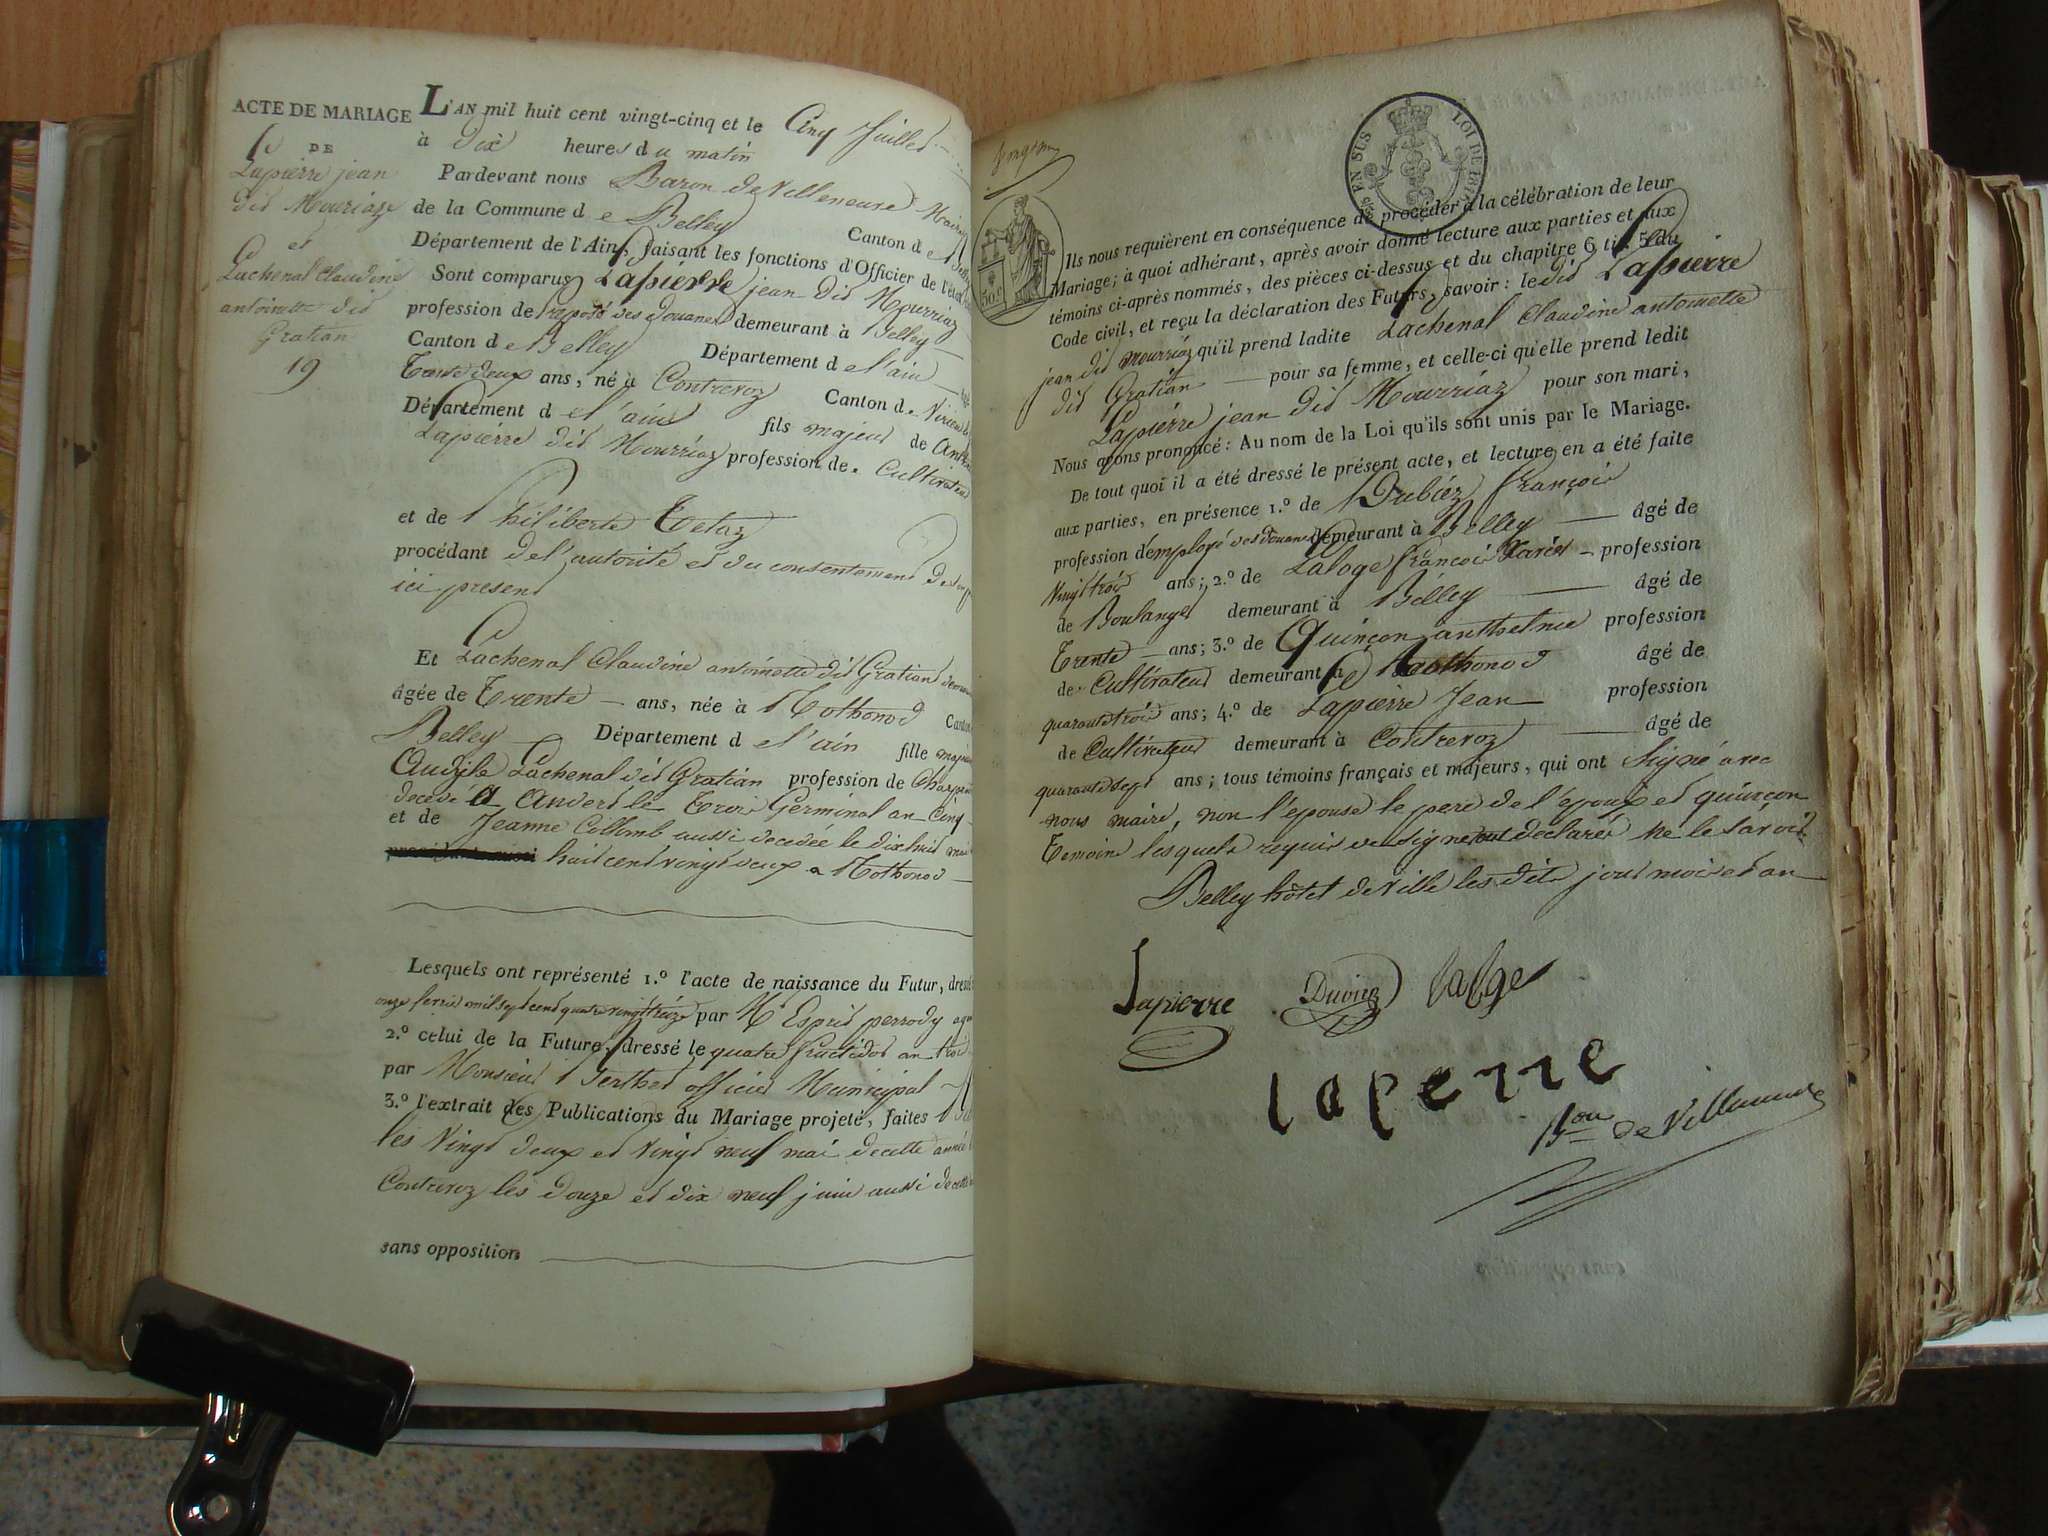 ACTE DE MARIAGE
DE
Lapierre jean
dit Mourriaz
et
Lachenal Claudine
antoinette dit
Gratian
19
L'AN mil huit cent vingt-cinq et le Cinq Juillet
à dix heures du matin
Pardevant nous Baron de Villeneuve Maire
de la Commune de Belley Canton de Belley
Département de l'Ain, faisant les fonctions d'Officier de l'état
Sont comparus Lapierre jean dit Mourriaz
profession de préposé des douanes demeurant à Belley
Canton de Belley Département de l'ain
Trente deux ans, né à Contrevoz Canton de
Département de l'ain fils majeur de
Lapierre dit Mourriaz profession de Cultivateur
et de Philiberte Tetaz
procédant de l'autorité et du consentement de
ici present
Et Lachenal Claudine antoinette dit Gratian
âgée de Trente ans, née à Rothonod
Belley Département de l'ain fille
Lachenal dit Gratian profession de
decedé a Andert le Germinal an Cinq
et de Jeanne Collomb aussi decedée le dix huit
huit cent vingt deux a Rothonod
Lesquels ont représenté 1.º l'acte de naissance du Futur,
onze fevrier mil sept cent quatre vingt treize par Mr Esprit perrody
2.º celui de la Future, dressé le quatre fructidor an trois
par Monsieur Berthet officier Municipal
3.º l'extrait des Publications du Mariage projeté, faites
les Vingt deux et Vingt neuf mai de cette année
Contrevoz les douze et dix neuf juin aussi de cette
sans opposition
50 c
EN SUS LOI DE
Ils nous requièrent en conséquence de procéder à la célébration de leur
Mariage; à quoi adhérant, après avoir donné lecture aux parties et aux
témoins ci-après nommés, des pièces ci-dessus et du chapitre 6, tit. 5 du
Code civil, et reçu la déclaration des Futurs, savoir: ledit Lapierre
jean dit mourriaz qu'il prend ladite Lachenal Claudine antoinette
dit Gratian pour sa femme, et celle-ci qu'elle prend ledit
Lapierre jean dit Mourriaz pour son mari,
Nous avons prononcé: Au nom de la Loi qu'ils sont unis par le Mariage.
De tout quoi il a été dressé le présent acte, et lecture en a été faite
aux parties, en présence 1.º de Dubiez françois
profession d'employé des douanes demeurant à Belley âgé de
Vingt trois ans; 2.º de Laloge françois Xavier profession
de Boulanger demeurant à Belley âgé de
Trente ans; 3.º de Quinçon anthelme profession
de Cultivateur demeurant à Rothonod âgé de
quarante trois ans; 4.º de Lapierre Jean profession
de Cultivateur demeurant à Contrevoz âgé de
quarante sept ans; tous témoins français et majeurs, qui ont signé avec
nous maire, non l'epouse le pere de l'epoux et quinçon
Temoins lesquels requis de signer ont declaré ne le savoir
Belley hôtel de Ville les dits jour mois et an
Lapierre Duviez laloge
laperre
Bon de Villeneuve